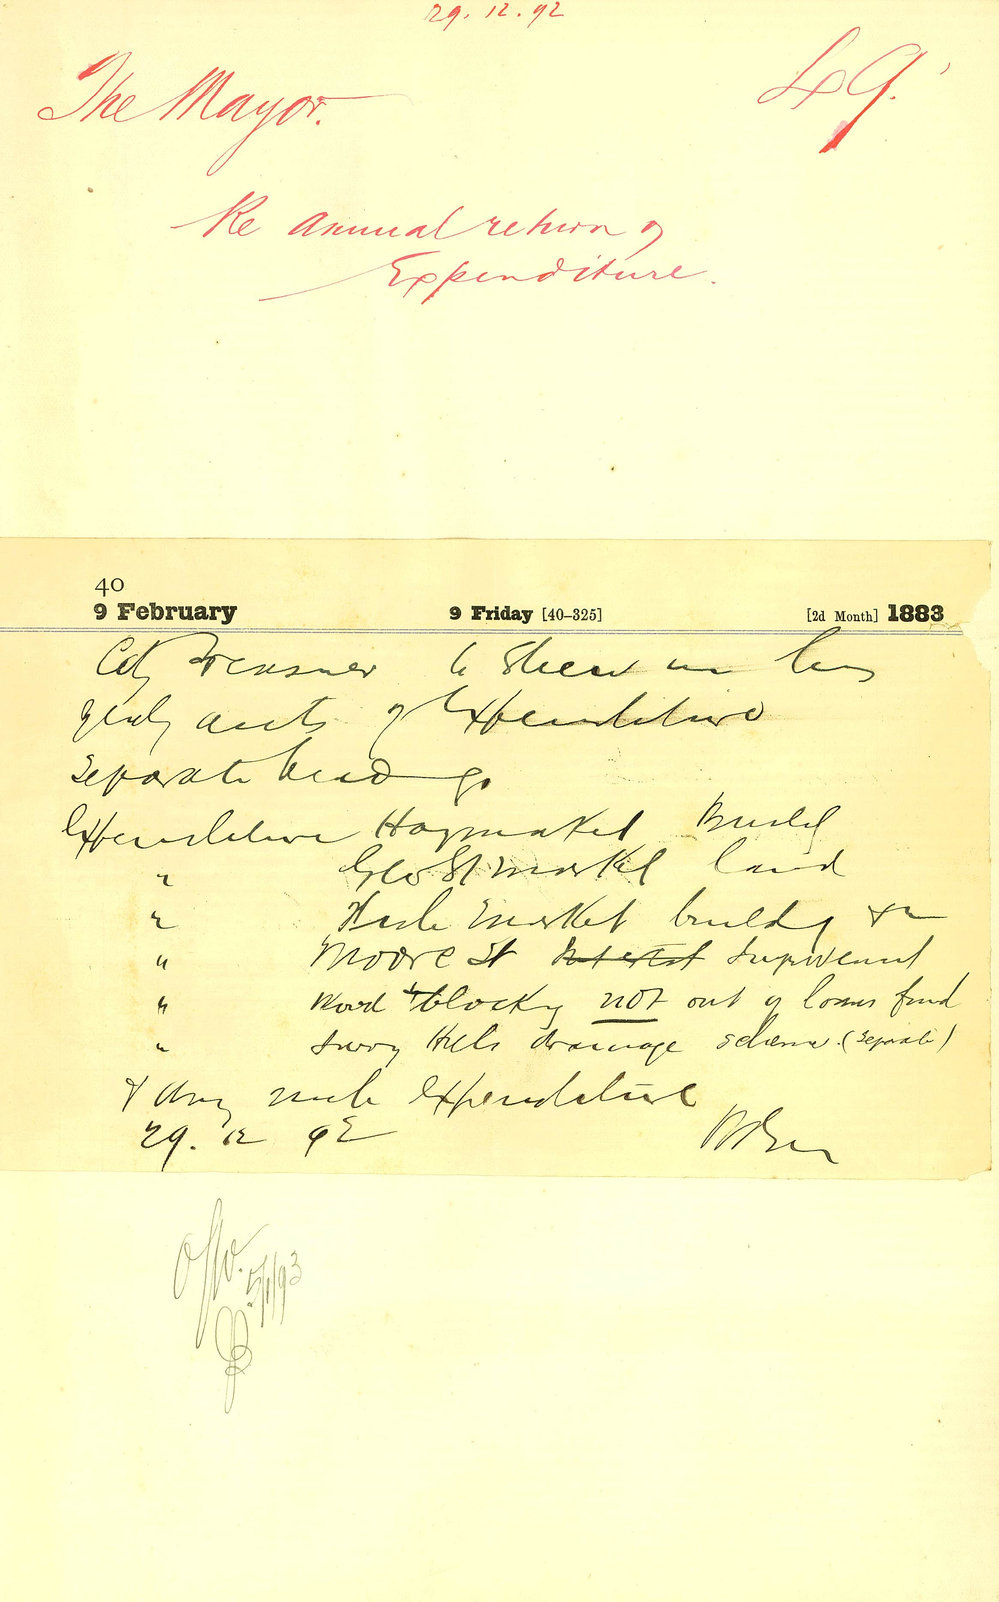 29. 12. 92
The Mayor.
Re annual return of
Expenditure.
40
9 February 9 Friday [40–325] [2d Month] 1883
City Treasurer to shew in his
yearly accts of Expenditure
separate headings
Expenditure Haymarket Build
" Geo St market land
" market buildg
" Moore St Interest Improvement
" Wood blocking not out of loans fund
" Surry Hills drainage scheme. (separate)
& any such expenditure
29. 12 92
5/1/93